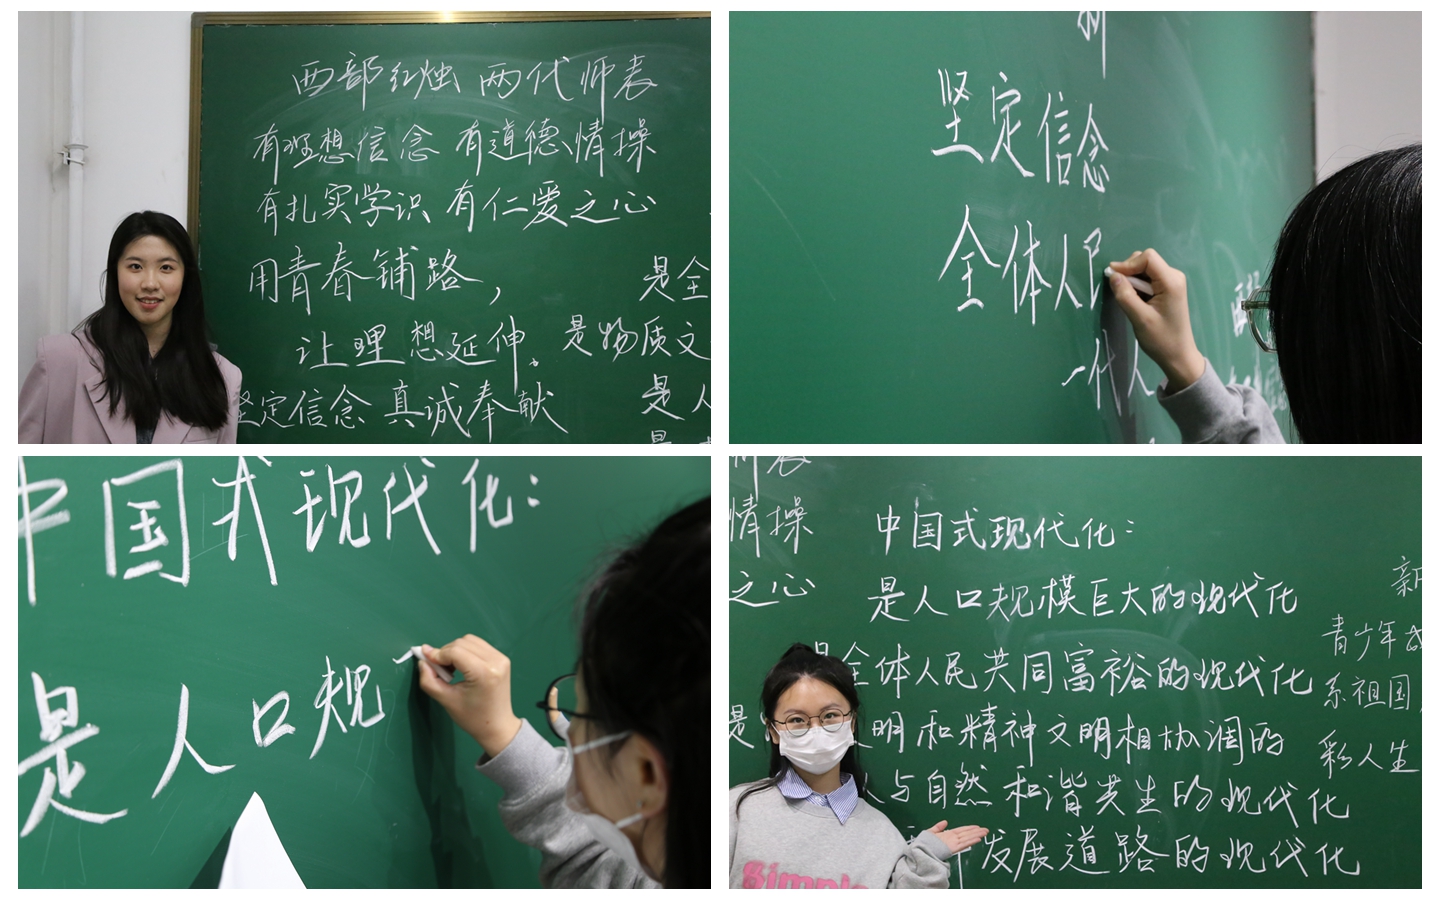 西部红烛 两代师表
有理想信念 有道德情操
有扎实学识 有仁爱之心
用青春铺路，
让理想延伸。
坚定信念 真诚奉献
是全
是物质文
是人
新
坚定信念
全体人民
一代人
中国式现代化：
是人口规
情操
之心
中国式现代化：
是人口规模巨大的现代化
是全体人民共同富裕的现代化
是
明和精神文明相协调的
人与自然和谐共生的现代化
发展道路的现代化
新
青少年
系祖国
彩人生
Simple